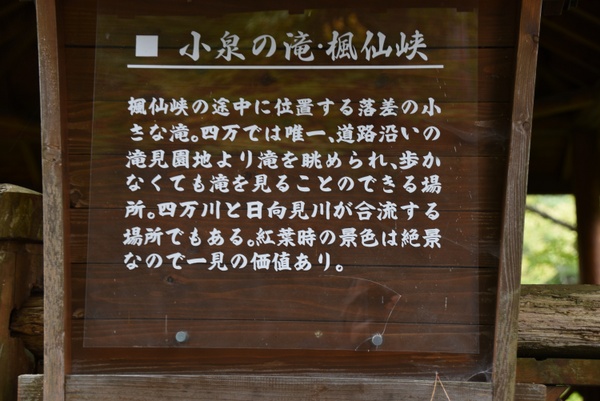 ■ 小泉の滝・楓仙峡
楓仙峡の途中に位置する落差の小
さな滝。四万では唯一、道路沿いの
滝見園地より滝を眺められ、歩か
なくても滝を見ることのできる場
所。四万川と日向見川が合流する
場所でもある。紅葉時の景色は絶景
なので一見の価値あり。